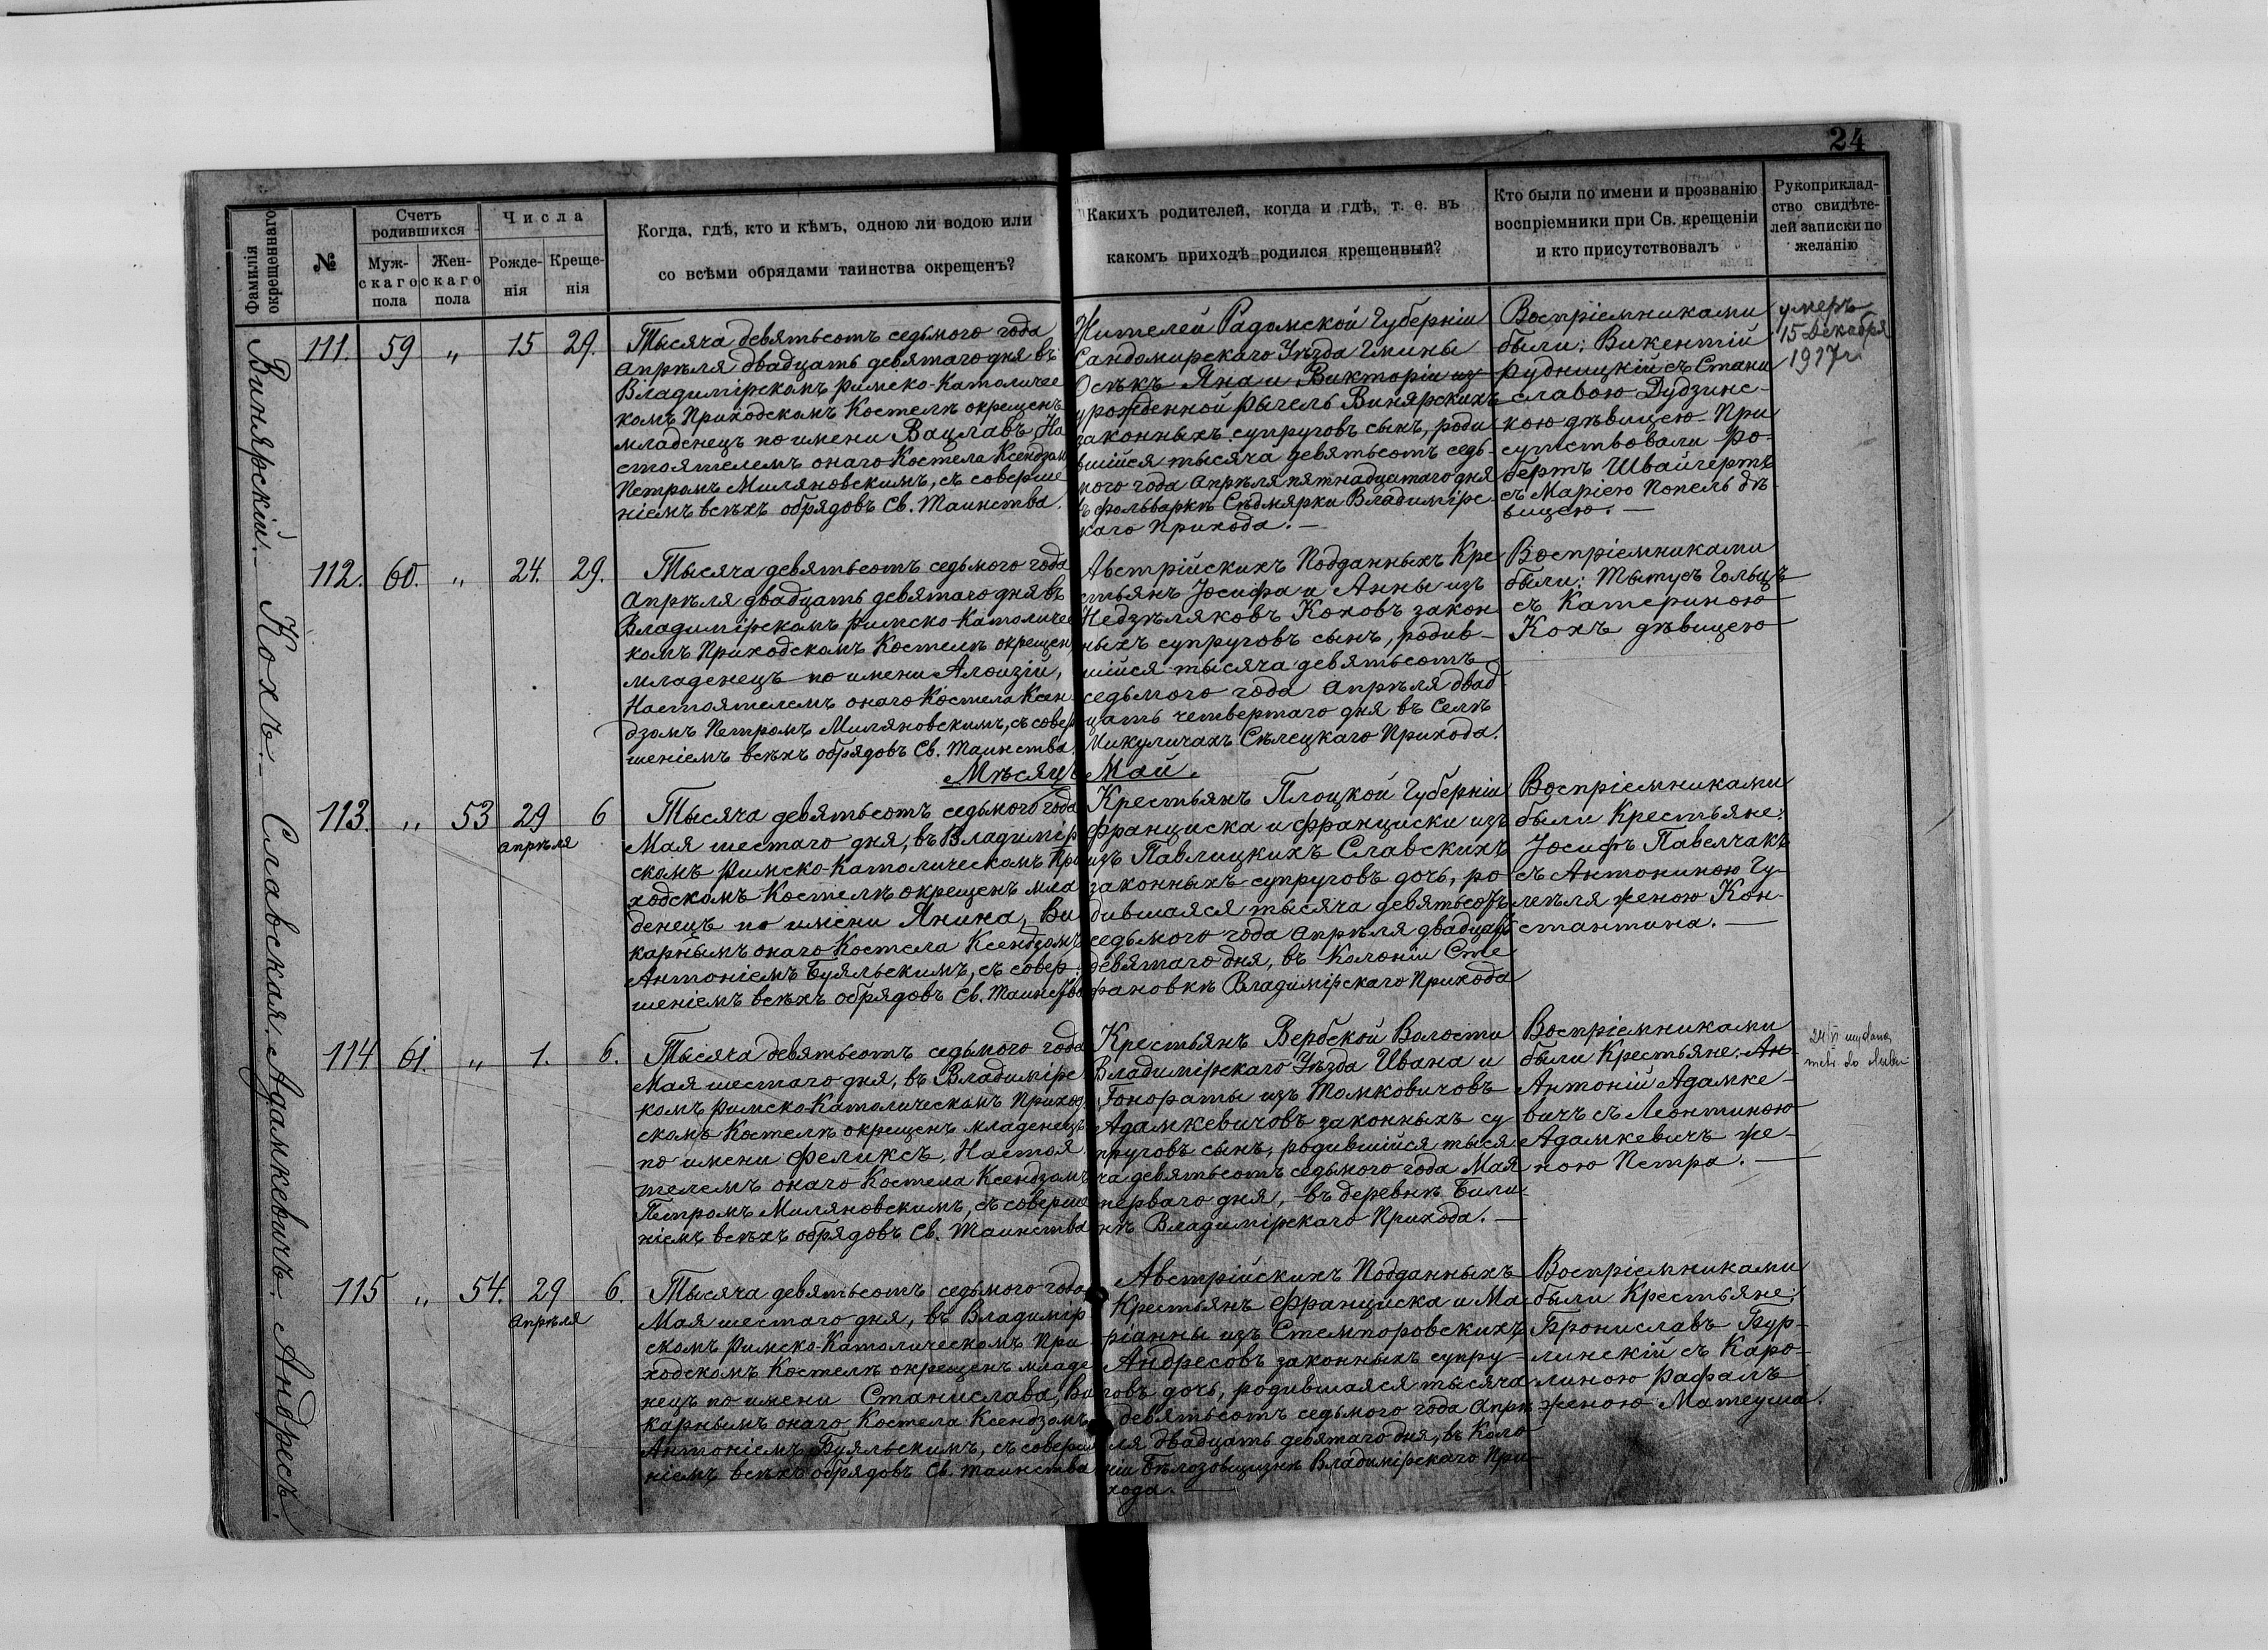 24
Фамилія окрещеннаго
№
Счетъ родившихся
Муж-скаго пола
Жен-скаго пола
Числа
Рожде-нія
Креще-нія
Когда, гдѣ, кто и кѣмъ, одною ли водою или
со всѣми обрядами таинства окрещенъ?
Какихъ родителей, когда и гдѣ, т. е. въ
какомъ приходѣ родился крещенный?
Кто были по имени и прозванію
воспріемники при Св. крещеніи
и кто присутствовалъ
Рукоприклад-
ство свидѣте-
лей записки по
желанію
Винярскій.
111. 59 " 15 29.
Тысяча девятьсотъ седьмого года
Апрѣля двадцать девятаго дня въ
Владимірскомъ Римско-Католичес
комъ Приходскомъ Костелѣ окрещенъ
младенецъ по имени Вацлавъ, На
стоятелемъ онаго Костела Ксендзом
Петромъ Миляновскимъ, съ соверше
ніемъ всѣхъ обрядовъ Св. Таинства.
Жителей Радомской Губерніи
Сандомирскаго Уѣзда Гмины
Осѣкъ Яна и Викторіи из
урожденной Рычель Винярскихъ
законныхъ супруговъ сынъ, роди
вшійся тысяча девятьсотъ седь-
мого года Апрѣля пятнадцатаго дня
въ фольваркѣ Сѣдмярки Владимірс
каго Прихода. —
Воспріемниками
были: Викентій
Рудницкій съ Стани
славою Дудзинс-
кою дѣвицею. При
сутствовали Ро-
бертъ Швайгертъ
съ Маріею Попель дѣ-
вицею. —
умеръ
15 Декабря
1917 г.
Кохъ.
112. 60. " 24. 29.
Тысяча девятьсотъ седьмого года
Апрѣля двадцать девятаго дня въ
Владимірскомъ Римско-Католичес
комъ Приходскомъ Костелѣ окрещен
младенецъ по имени Алоизій,
Настоятелемъ онаго Костела Ксен
дзомъ Петромъ Миляновскимъ, съ совер
шеніемъ всѣхъ обрядовъ Св. Таинства.
Австрійскихъ Подданныхъ Кре
стьянъ Іосифа и Анны изъ
Недзѣляковъ Коховъ закон
ныхъ супруговъ сынъ, родив-
шійся тысяча девятьсотъ
седьмого года Апрѣля двад-
цать четвертаго дня въ Селѣ
Микуличахъ Сѣлецкаго Прихода.
Воспріемниками
были: Тытусъ Гольцъ
съ Катериною
Кохъ дѣвицею
Мѣсяцъ Май.
Славская.
113. " 53 29 Апрѣля 6
Тысяча девятьсотъ седьмого года
Мая шестаго дня, въ Владимір
скомъ Римско-Католическомъ При
ходскомъ Костелѣ окрещенъ мла
денецъ по имени Янина, Ви
карнымъ онаго Костела Ксендзомъ
Антоніемъ Буяльскимъ, съ совер-
шеніемъ всѣхъ обрядовъ Св. Таинства
Крестьянъ Плоцкой Губерніи
Франциска и Франциски изъ
изъ Павлицкихъ Славскихъ
законныхъ супруговъ дочь, ро
дившаяся тысяча девятьсотъ
седьмого года Апрѣля двадцать
девятаго дня, въ Колоніи Сте
фановкѣ Владимірскаго Прихода
Воспріемниками
были Крестьяне:
Іосифъ Павелчакъ
съ Антониною Гу-
лѣля женою Кон-
стантина. —
Адамкевичъ.
114 61. " 1. 6.
Тысяча девятьсотъ седьмого года
Мая шестаго дня, въ Владимірс
комъ Римско-Католическомъ Приход
скомъ Костелѣ окрещенъ младенецъ
по имени Феликсъ, Настоя
телемъ онаго Костела Ксендзомъ
Петромъ Миляновскимъ, съ соверше
ніемъ всѣхъ обрядовъ Св. Таинства
Крестьянъ Вербской Волости
Владимірскаго Уѣзда Ивана и
Гонораты изъ Томковичовъ
Адамкевичовъ законныхъ су
пруговъ сынъ, родившійся тыся
ча девятьсотъ седьмого года Мая
перваго дня, въ деревнѣ Били
нѣ Владимірскаго Прихода. —
Воспріемниками
были Крестьяне: Ан-
Антоній Адамке-
вичъ съ Леонтиною
Адамкевичъ же-
ною Петра. —
Андресъ.
115 " 54. 29 Апрѣля 6.
Тысяча девятьсотъ седьмого года
Мая шестаго дня, въ Владимір
скомъ Римско-Католическомъ При
ходскомъ Костелѣ окрещенъ младе
нецъ по имени Станислава, Ви
карнымъ онаго Костела Ксендзомъ
Антоніемъ Буяльскимъ, съ соверше
ніемъ всѣхъ обрядовъ Св. Таинства
Австрійскихъ Подданныхъ
Крестьянъ Франциска и Ма-
ріанны изъ Стемпоровскихъ
Андресовъ законныхъ супру-
говъ дочь, родившаяся тысяча
девятьсотъ седьмого года Апрѣ
ля двадцать девятаго дня, въ Коло
ніи Бѣлозовщизнѣ Владимірскаго При-
хода. —
Воспріемниками
были Крестьяне:
Брониславъ Бур-
линскій съ Каро-
линою Рафалъ
женою Матеуша.